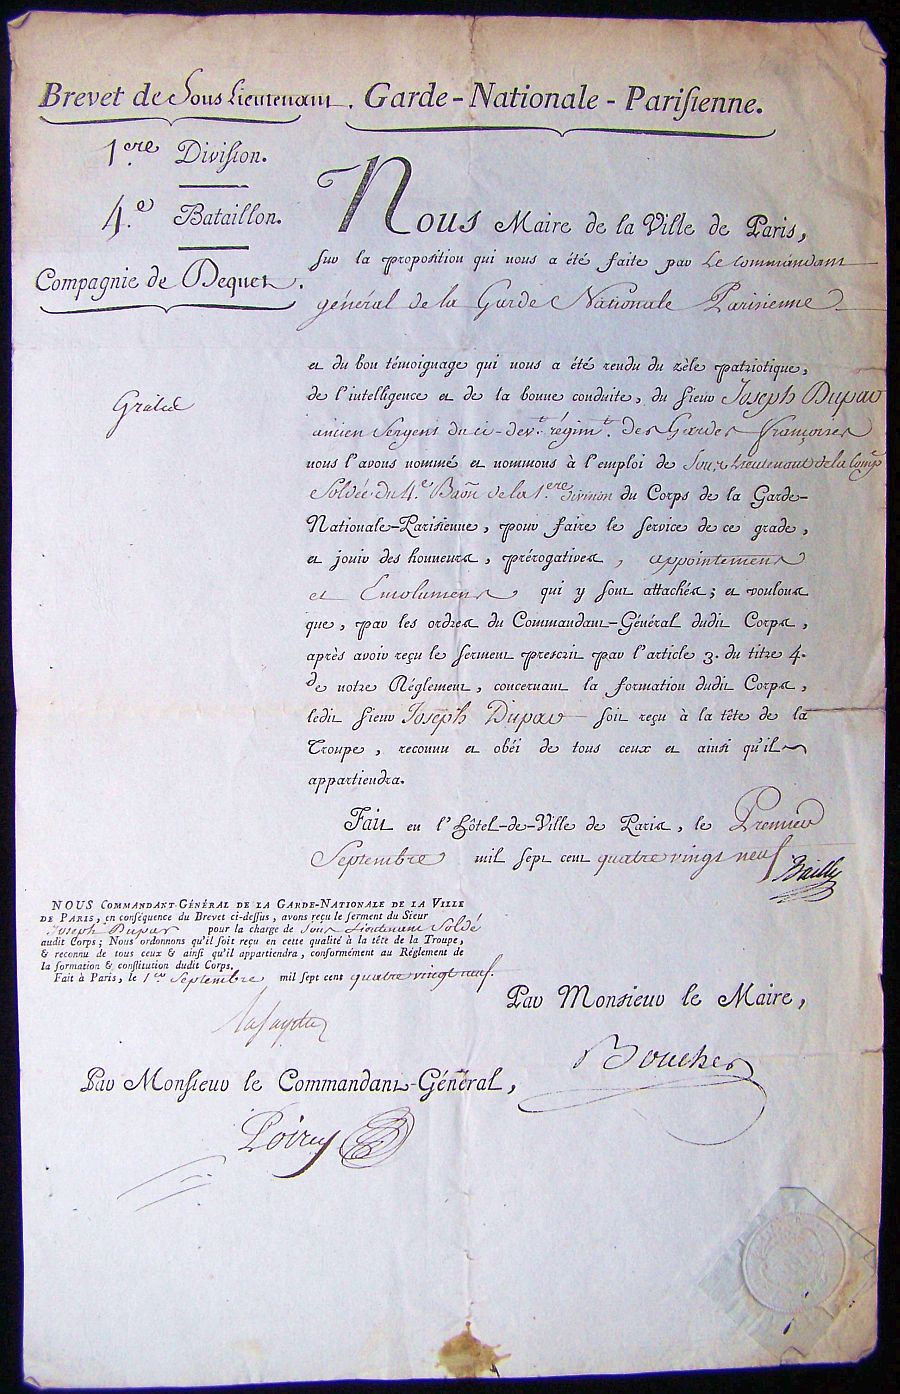 Brevet de Sous Lieutenant. Garde-Nationale-Pariſienne.
1.ere Diviſion.
4.e Bataillon.
Compagnie de Dequet.
Gratis
Nous Maire de la Ville de Paris,
sur la proposition qui nous a été faite par Le Commandant
général de la Garde Nationale Parisienne
et du bon témoignage qui nous a été rendu du zèle patriotique,
de l'intelligence et de la bonne conduite, du ſieur Joseph Dupar
ancien Sergent du ci-dev.t régim.t des Gardes françoises
nous l'avons nommé et nommons à l'emploi de Sous Lieutenant de la Comp.e
Soldée du 4.e Baōn de la 1.ere Division du Corps de la Garde-
Nationale-Parisienne, pour faire le service de ce grade,
et jouir des honneurs, prérogatives, appointemens
et Emolumens qui y ſont attachés; et voulons
que, par les ordres du Commandant-Général dudit Corps,
après avoir reçu le ſerment prescrit par l'article 3. du titre 4.
de notre Réglement, concernant la formation dudit Corps,
ledit ſieur Joseph Dupar ſoit reçu à la tête de la
Troupe, reconnu et obéi de tous ceux et ainsi qu'il
appartiendra.
Fait en l'Hôtel-de-Ville de Paris, le Premier
Septembre mil ſept cent quatre vingt neuf
Bailly
NOUS COMMANDANT GÉNÉRAL DE LA GARDE-NATIONALE DE LA VILLE
DE PARIS, en conſéquence du Brevet ci-deſſus, avons reçu le ſerment du Sieur
Joseph Dupar pour la charge de Sous Lieutenant Soldé
audit Corps; Nous ordonnons qu'il ſoit reçu en cette qualité à la tête de la Troupe,
& reconnu de tous ceux & ainſi qu'il appartiendra, conformément au Réglement de
la formation & conſtitution dudit Corps.
Fait à Paris, le 1er Septembre mil sept cent quatre vingt neuf.
Lafayette
Par Monsieur le Maire,
Boucher
Par Monſieur le Commandant-Général,
Poirey